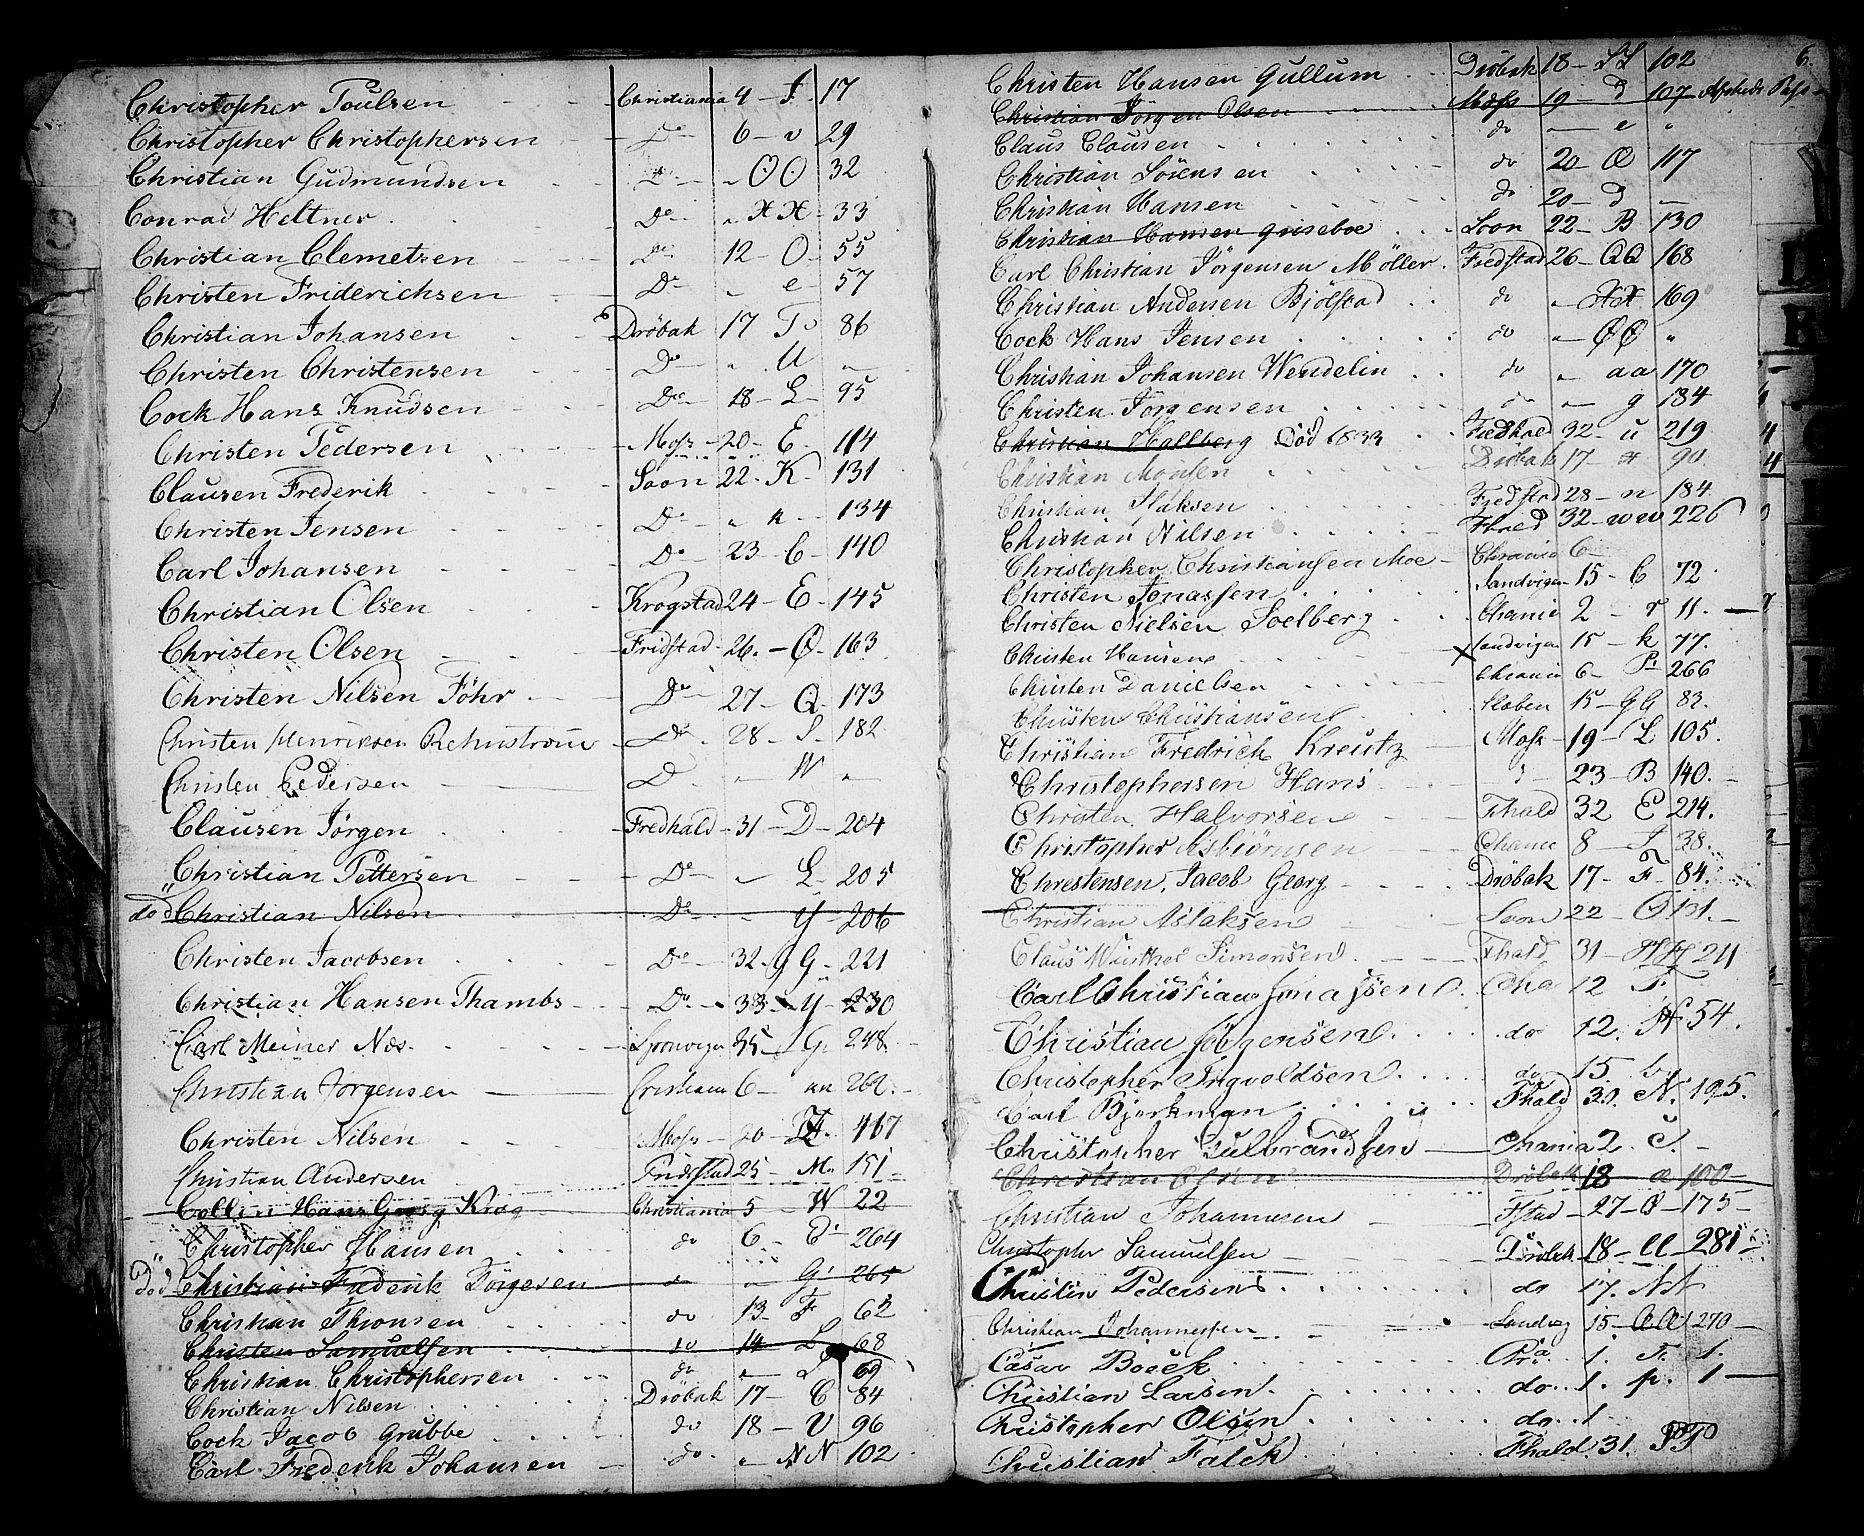 Christopher Poulsen Christiania 4 - J 17
Christopher Christophersen Do 6 - v 29
Christian Gudmundsen Do " OO 32
Conrad Heltner Do " XX - 33
Christian Clemetsen Do 12 - O - 55
Christen Friderichsen Do " e - 57
Christian Johansen Dröbak 17 T 86
Christen Christensen Do " U "
Cock Hans Knudsen Do 18 - L - 95
Christen Pedersen Moss - 20 - E - 114
Clausen Frederik Soon 22 - K - 131
Christen Jensen Do " k - 134
Carl Johansen Do 23 - C - 140
Christian Olsen Krogstad 24 - E - 145
Christen Olsen Fridstad 26 - Ø - 163
Christen Nilsen Föhr Do 27 - Q - 173
Christen Henriksen Do 28 - S - 182
Christen Pedersen D - W "
Clausen Jörgen Fredhald - 31 - D - 204
Christian Pettersen Do - L - 205
död Christian Nilsen Do - Y - 206
Christen Jacobsen Do 32 - GG - 221
Christian Hansen Thambs Do 33 - Y - 230
Carl Meiner Næs 35 - G 248
Christian Jörgensen Cristiania 6 - 262
Christen Nilsen Moss - 20 -
Christian Andersen Fridstad 25 - M 151
Collin Hans Georg Krog Christiania 5 - W 22
Christopher Hansen do 6 - E 264
död Christian Frederik Törgesen do - G 265
Christian Thronsen do 13 - F - 62
Christen Samuelsen do 14 - L 68
Christian Christophersen do - L 69
Christian Nilsen Dröbak 17 - C 84
Cock Jacob Grubbe do 18 - V 96
Carl Frederik Johansen do " NN 102
6.
Christen Hansen Gullum Dröbak 18 - LL 102
Christian Jörgen Olsen Moss 19 - d 107 Afskeds Pass
Claus Clausen do - e "
Christian Sörensen do 20 - Œ 117
Christian Hansen do 20 - d -
Christian Hansen Griseboe Soon 22 - B 130
Carl Christian Jörgensen Möller Fredstad 26 - QQ 168
Christian Andersen Bjölstad do " 169
Cock Hans Jensen do " ØØ "
Christian Johansen Wendelin do " aa 170
Christen Jörgensen do - g 184
Christian Hallberg Död 1833 Fredhald 32 - u 219
Christian Monsen Dröbak 17 - 90
Christian Fredstad 28 - n 184
Christian Nilsen Fhald 32 - ww 226
Christopher Christiansen Moe Chrania 6
Christen Jonassen Sandvigen 15 - C 72
Christen Nielsen Soelberg Chania 2 - r 11.
Christen Hansen Sandvigen 15 - k 77.
Christen Danielsen Chrania 6 - P 266
Christen Christiansen 15 - GG 82.
Christian Fredrich Kreutz Moss - 19 - L 105.
Christophersen Hans 23 - B 140.
Christen Halvorsen Fhald 32 E 214.
Christopher Asbiörnsen Chania 8 - J 38.
Christensen, Jacob Georg Dröbak 17 - F 84.
Christian Aslaksen Soon 22 - 131.
Claus Simonsen Fhald 31 - HH 211
Carl Christian Jonassen Cha 12 F
Christian Jörgensen do 12. N 54.
Christopher Ingvoldsen do 15
Carl Bjerkman Fhald 30. N. 195.
Christopher Gulbrandsen Chania 2. C. -
Christian Olsen Dröbak 18 a 100
Christian Johannesen Fstad - 27 - O - 175
Christopher Samuelsen Dröbak 18 - ll - 281
Christen Pedersen do 17. NN
Christian Johannessen Sandvig 15 - 270
Cæsar Boeck Chra 1. N. 1.
Christian Larsen do 1. p. 1
Christopher Olsen do 1
Christian Falck Fhald 31.